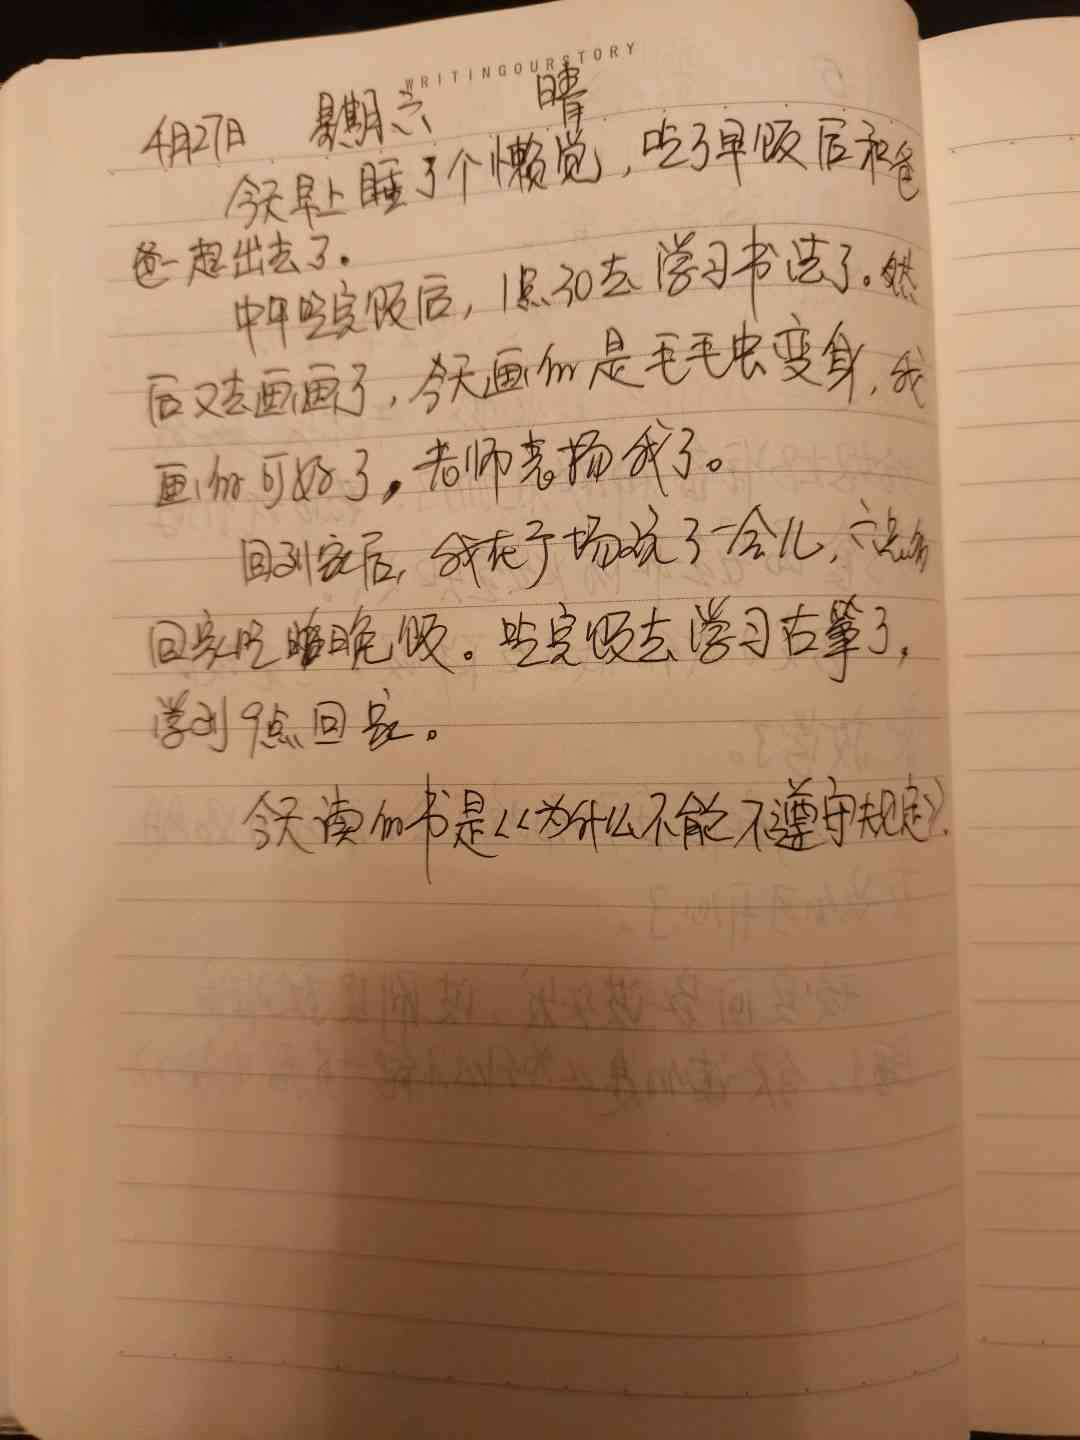 WRITINGOURSTORY
4月27日 星期六 晴
今天早上睡了个懒觉，吃了早饭后和爸
爸一起出去了。
中午吃完饭后，1点30去学习书法了。然
后又去画画了，今天画的是毛毛虫变身，我
画的可好了，老师表扬我了。
回到家后，我在广场玩了一会儿，六点多
回家吃晚饭。吃完饭去学习古筝了，
学到9点回家。
今天读的书是《为什么不能不遵守规定》.